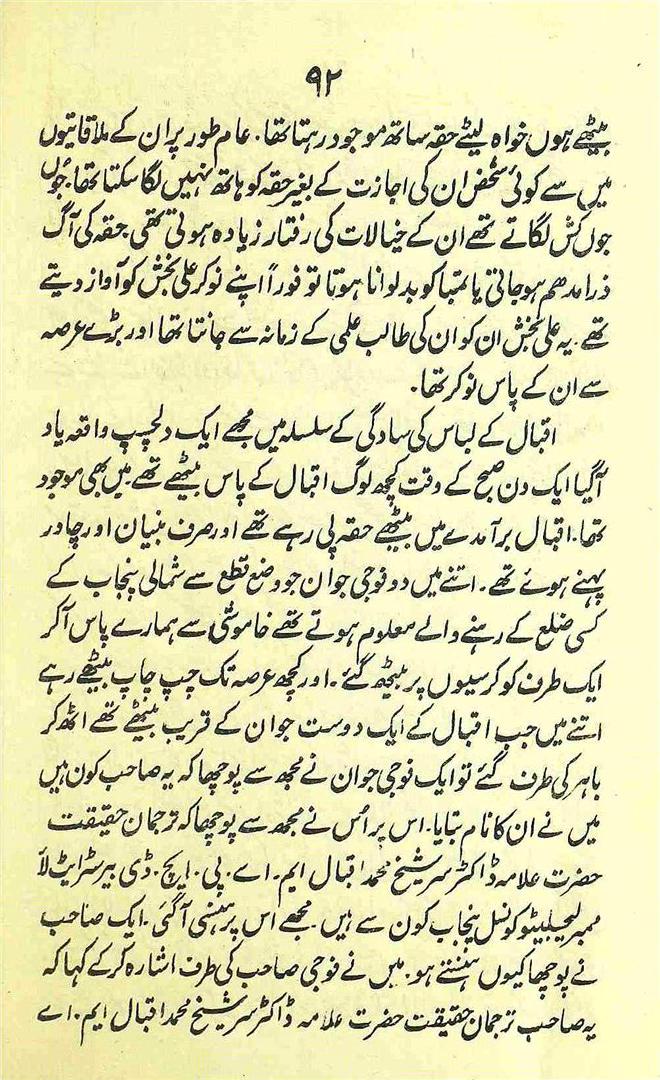 ۹۲
بیٹھے ہوں خواہ لیٹے حقہ ساتھ موجود رہتا تھا۔ عام طور پر ان کے ملاقاتیوں
میں سے کوئی شخص ان کی اجازت کے بغیر حقہ کو ہاتھ نہیں لگا سکتا تھا۔ جوں
جوں کش لگاتے تھے ان کے خیالات کی رفتار زیادہ ہوتی تھی۔ حقہ کی آگ
ذرا مدھم ہو جاتی یا تمباکو بدلوانا ہوتا تو فوراً اپنے نوکر علی بخش کو آواز دیتے
تھے۔ یہ علی بخش ان کو ان کی طالب علمی کے زمانہ سے جانتا تھا اور بڑے عرصہ
سے ان کے پاس نوکر تھا۔
اقبال کے لباس کی سادگی کے سلسلہ میں مجھے ایک دلچسپ واقعہ یاد
آگیا ایک دن صبح کے وقت کچھ لوگ اقبال کے پاس بیٹھے تھے میں بھی موجود
تھا۔ اقبال برآمدے میں بیٹھے حقہ پی رہے تھے اور صرف بنیان اور چادر
پہنے ہوئے تھے۔ اتنے میں دو فوجی جوان جو وضع قطع سے شمالی پنجاب کے
کسی ضلع کے رہنے والے معلوم ہوتے تھے خاموشی سے ہمارے پاس آکر
ایک طرف کو کرسیوں پر بیٹھ گئے۔ اور کچھ عرصہ تک چپ چاپ بیٹھے رہے
اتنے میں جب اقبال کے ایک دوست جو ان کے قریب بیٹھے تھے اٹھ کر
باہر کی طرف گئے تو ایک فوجی جوان نے مجھ سے پوچھا کہ یہ صاحب کون ہیں
میں نے ان کا نام بتایا۔ اس پر اُس نے مجھ سے پوچھا کہ ترجمان حقیقت
حضرت علامہ ڈاکٹر سر شیخ محمد اقبال ایم۔ اے۔ پی۔ ایچ۔ ڈی بیرسٹرایٹ لأ
ممبر لیجسلیٹو کونسل پنجاب کون سے ہیں۔ مجھے اس پر ہنسی آگئی۔ ایک صاحب
نے پوچھا کیوں ہنستے ہو۔ میں نے فوجی صاحب کی طرف اشارہ کرکے کہا کہ
یہ صاحب ترجمان حقیقت حضرت علامہ ڈاکٹر سر شیخ محمد اقبال ایم۔ اے